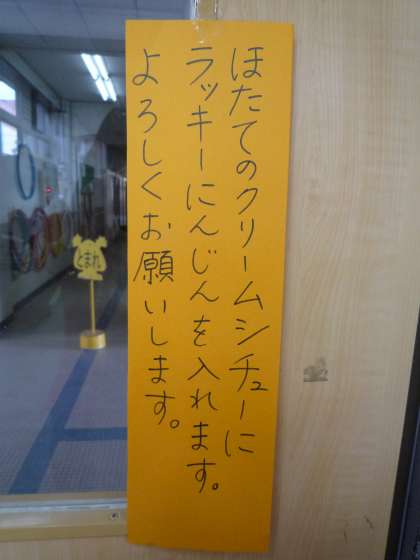 ほたてのクリームシチューに
ラッキーにんじんを入れます。
よろしくお願いします。
とまれ